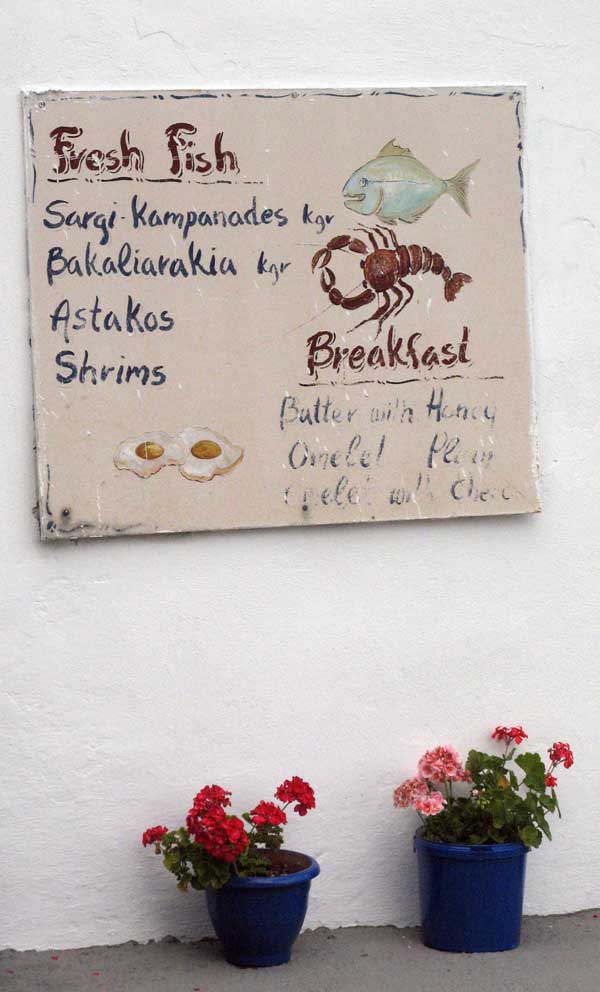 Fresh Fish
Sargi-Kampanades kgr
Bakaliarakia kgr
Astakos
Shrims
Breakfast
Butter with Honey
Omelet Plain
Omelet with